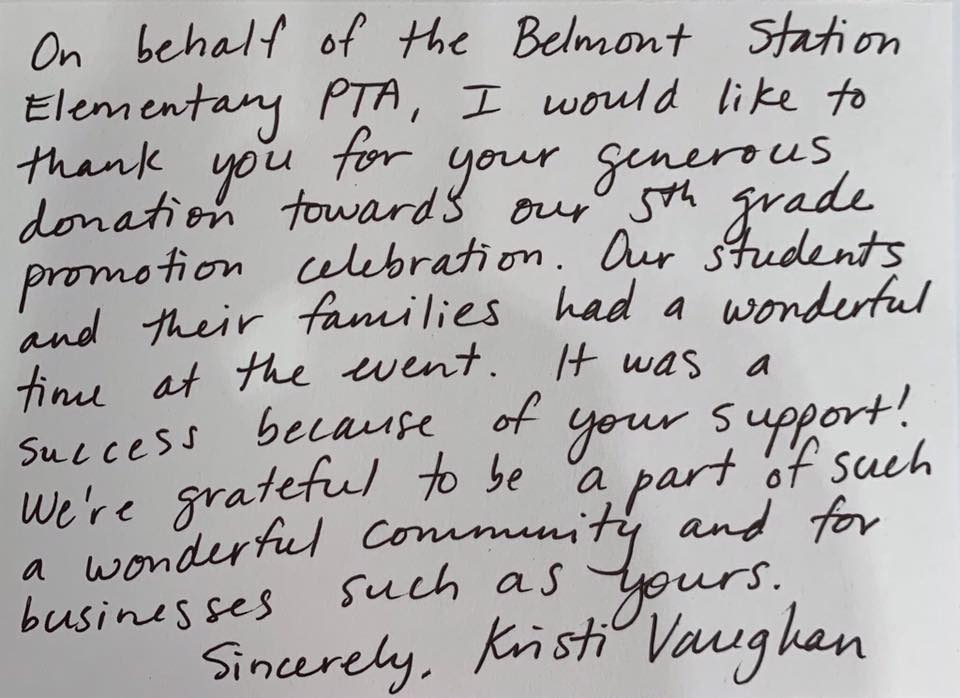 On behalf of the Belmont Station
Elementary PTA, I would like to
thank you for your generous
donation towards our 5th grade
promotion celebration. Our students
and their families had a wonderful
time at the event. It was a
success because of your support!
We're grateful to be a part of such
a wonderful community and for
businesses such as yours.
Sincerely, Kristi Vaughan